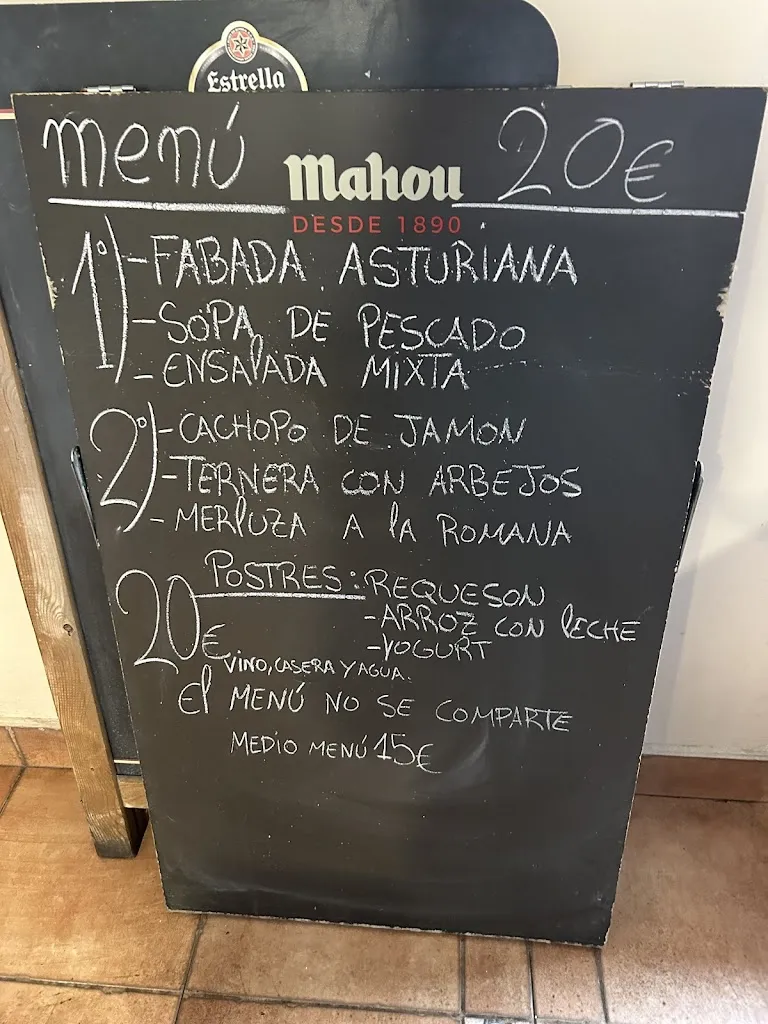 Estrella
menú 20€
Mahou
DESDE 1890
1º) - FABADA ASTURIANA
- SOPA DE PESCADO
- ENSALADA MIXTA
2º) - CACHOPO DE JAMON
- TERNERA CON ARBEJOS
- MERLUZA A LA ROMANA
POSTRES: REQUESON
- ARROZ CON LECHE
- YOGURT
20€ VINO, CASERA Y AGUA.
El MENÚ NO SE COMPARTE
MEDIO MENÚ 15€